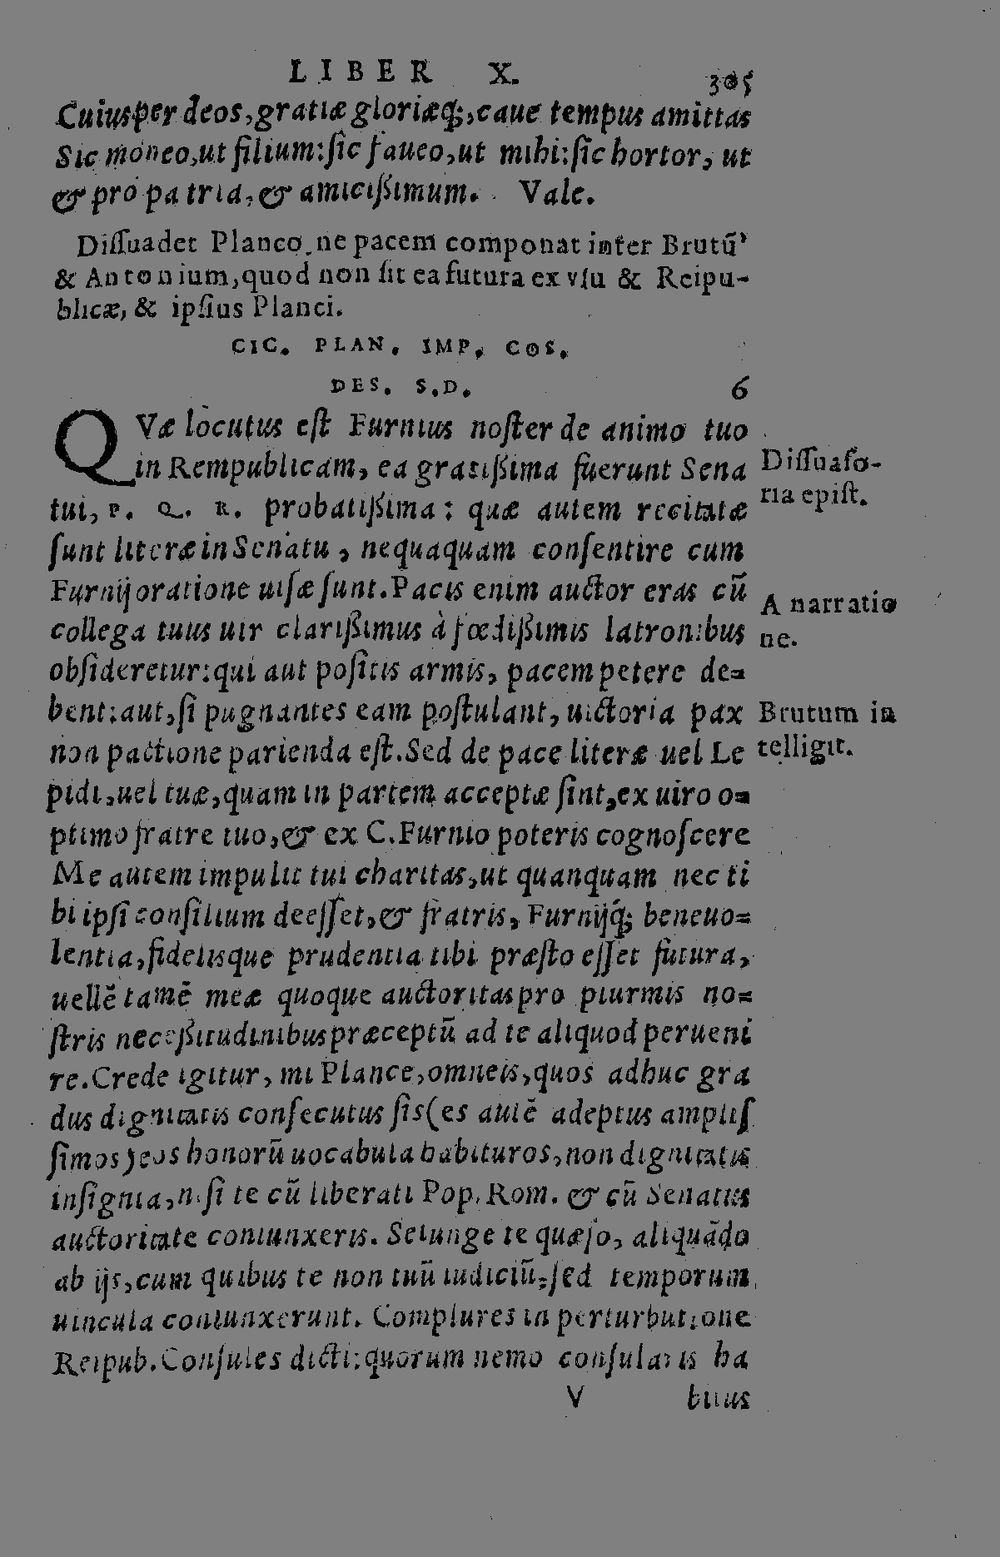 LIBER X. 305
Cuiusper deos,gratiæ gloriæq;,caue tempus amittas
Sic moneo,ut filium:sic faueo,ut mihi:sic hortor, ut
& pro patria,& amicißimum. Vale.
Dissuadet Planco,ne pacem componat inter Brutū
& Antonium,quod non sit ea futura ex vsu & Reipu-
blicæ, & ipsius Planci.
CIC. PLAN. IMP. COS.
DES. S.D. 6
QVæ locutus est Furnius noster de animo tuo
in Rempublicam, ea gratißima fuerunt Sena
tui, P. Q. R. probatißima: quæ autem recitatæ
sunt literæ in Senatu, nequaquam consentire cum
Furnij oratione uisæ sunt. Pacis enim auctor eras cū
collega tuus uir clarißimus à fœdißimis latronibus
obsideretur: qui aut positis armis, pacem petere de=
bent: aut, si pugnantes eam postulant, uictoria pax
non pactione parienda est. Sed de pace literæ uel Le
pidi, uel tuæ, quam in partem acceptæ sint, ex uiro o=
ptimo fratre tuo, & ex C. Furnio poteris cognoscere
Me autem impulit tui charitas, ut quanquam nec ti
bi ipsi consilium deesset, & fratris, Furnijq́; beneuo=
lentia, fidelisque prudentia tibi præsto esset futura,
uellē tamē meæ quoque auctoritas pro plurmis no=
stris neceßitudinibus præceptū ad te aliquod perueni
re. Crede igitur, mi Plance, omneis, quos adhuc gra
dus dignitatis consecutus sis (es autē adeptus amplis
simos) eos honorū uocabula habituros, non dignitatis
insignia, nisi te cū liberati Pop. Rom. & cū Senatus
auctoritate coniunxeris. Seiunge te quæso, aliquādo
ab ijs, cum quibus te non tuū iudiciū, sed temporum
uincula coniunxerunt. Complures in perturbatione
Reipub. Consules dicti: quorum nemo consularis ha
V bitus
Dissuaso-
ria epist.
A narratio
ne.
Brutum in
telligit.